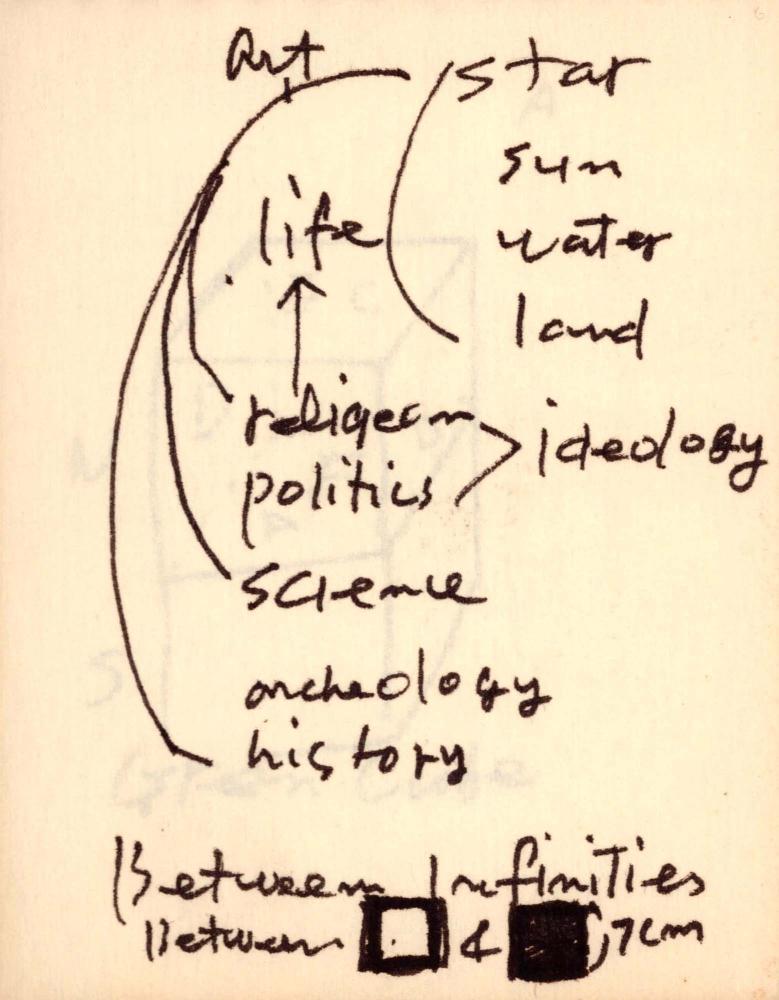 Art
star
sun
life
water
land
religeon
politics
ideology
science
archeology
history
Between Infinities
Between & 7cm